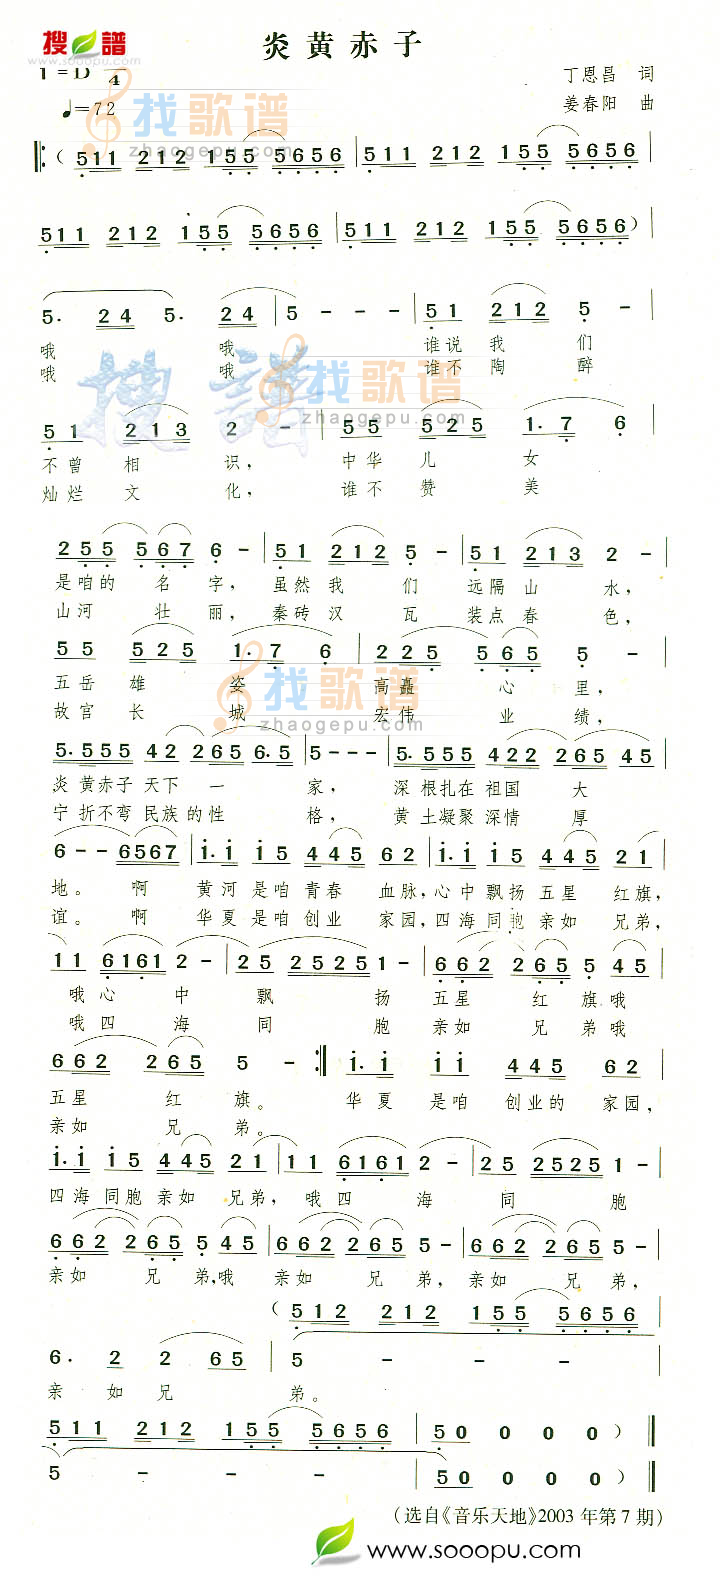 搜谱
www.sooopu.com
炎黄赤子
1=D 4
丁恩昌 词
♩=72
姜春阳 曲
找歌谱
zhaogepu.com
( 511 212 155 5656 | 511 212 155 5656 |
511 212 155 5656 | 511 212 155 5656 ) |
5. 24 5. 24 | 5 - - - | 51 212 5 - |
哦 哦 谁说我们
哦 哦 谁不陶醉
搜谱
找歌谱
zhaogepu.com
51 213 2 - | 55 525 1.7 6 |
不曾相识, 中华儿女
灿烂文化, 谁不赞美
255 567 6 - | 51 212 5 - | 51 213 2 - |
是咱的名字, 虽然我们 远隔山水,
山河壮丽, 秦砖汉瓦 装点春色,
55 525 1.7 6 | 225 565 5 - |
五岳雄姿 高矗心里,
故宫长城 宏伟业绩,
找歌谱
zhaogepu.com
5.555 42 265 6.5 | 5 - - - | 5.555 422 265 45 |
炎黄赤子天下一家, 深根扎在祖国大
宁折不弯民族的性格, 黄土凝聚深情厚
6 - - 6567 | 1.1 15 445 62 | 1.1 15 445 21 |
地。啊 黄河是咱青春血脉,心中飘扬五星红旗,
谊。啊 华夏是咱创业家园,四海同胞亲如兄弟,
11 6161 2 - | 25 2525 1 - | 662 265 5 45 |
哦心中飘扬五星红旗哦
哦四海同胞亲如兄弟哦
662 265 5 - :‖ 1.1 11 445 62 |
五星红旗。 华夏是咱创业的家园,
亲如兄弟。
1.1 15 445 21 | 11 6161 2 - | 25 2525 1 - |
四海同胞亲如兄弟,哦四海同胞
662 265 5 45 | 662 265 5 - | 662 265 5 - |
亲如兄弟,哦亲如兄弟,亲如兄弟,
( 512 212 155 5656 |
6. 2 2 65 | 5 - - - |
亲如兄弟。
511 212 155 5656 | 50 0 0 0 ) ‖
5 - - - | 50 0 0 0 ‖
(选自《音乐天地》2003年第7期)
www.sooopu.com